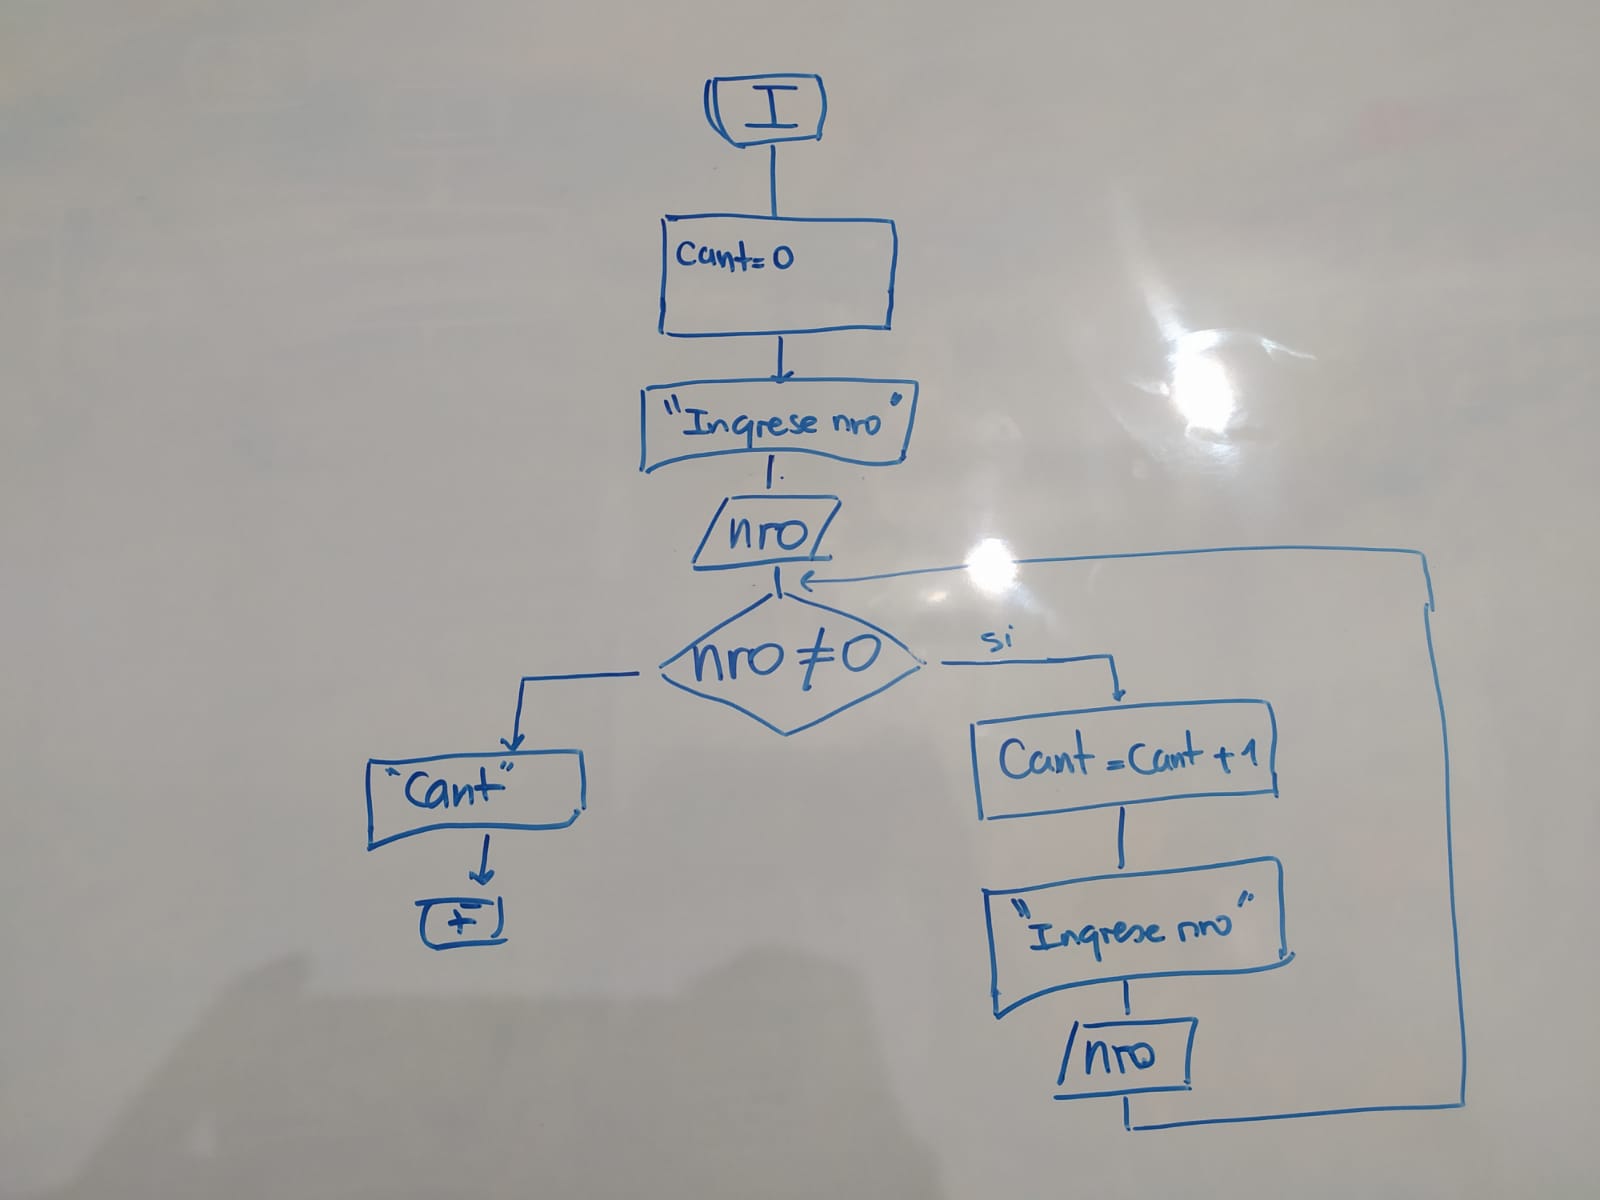 I
Cant=0
"Ingrese nro"
nro
nro ≠ 0
si
Cant = Cant + 1
"Cant"
"Ingrese nro"
F
nro